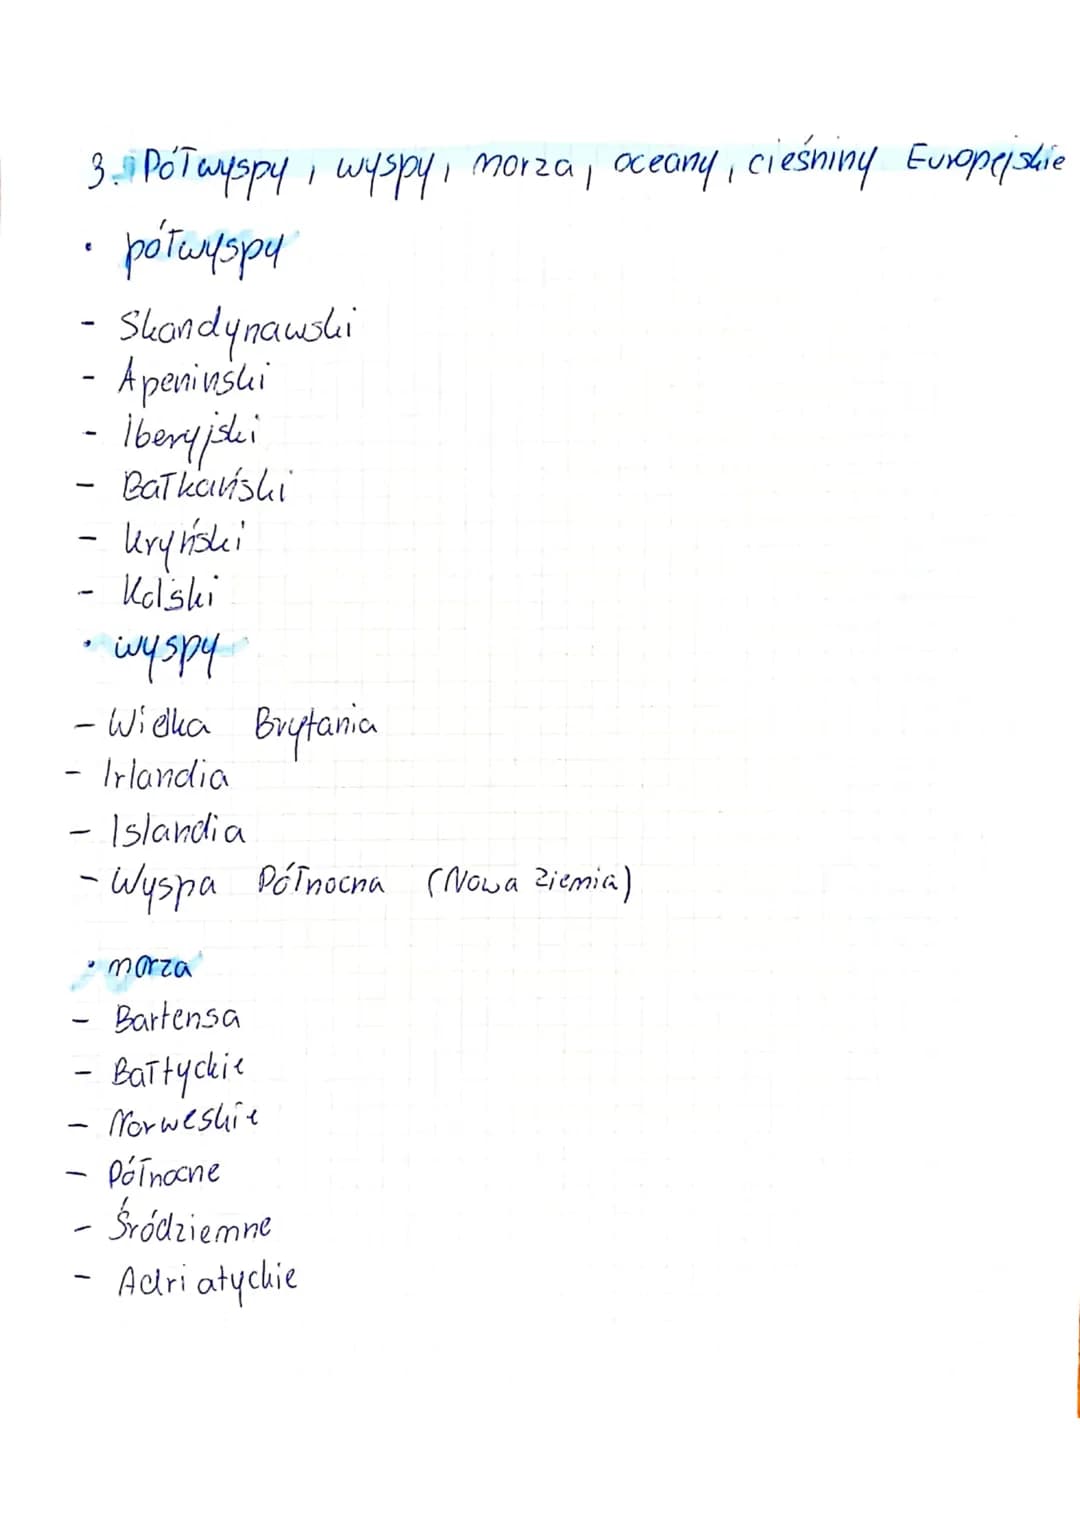 3. Półwyspy, wyspy, morza, oceany, cieśniny Europejskie
• półwyspy
- Skandynawski
- Apeninski
- Iberyjski
- Bałkański
- Kryński
- Kolski
• wyspy
- Wielka Brytania
- Irlandia
- Islandia
- Wyspa Północna (Nowa Ziemia)
• morza
- Bartensa
- Bałtyckie
- Norweskie
- Północne
- Śródziemne
- Adriatyckie